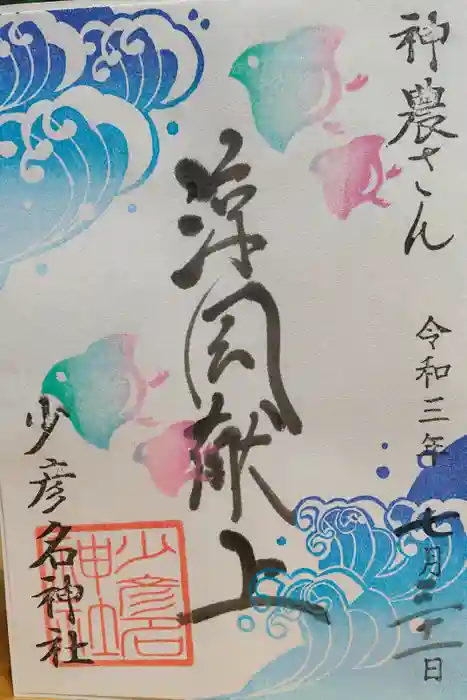 神農さん
令和三年
七月二十一日
涼風献上
少彦名神社
少彦名
神社